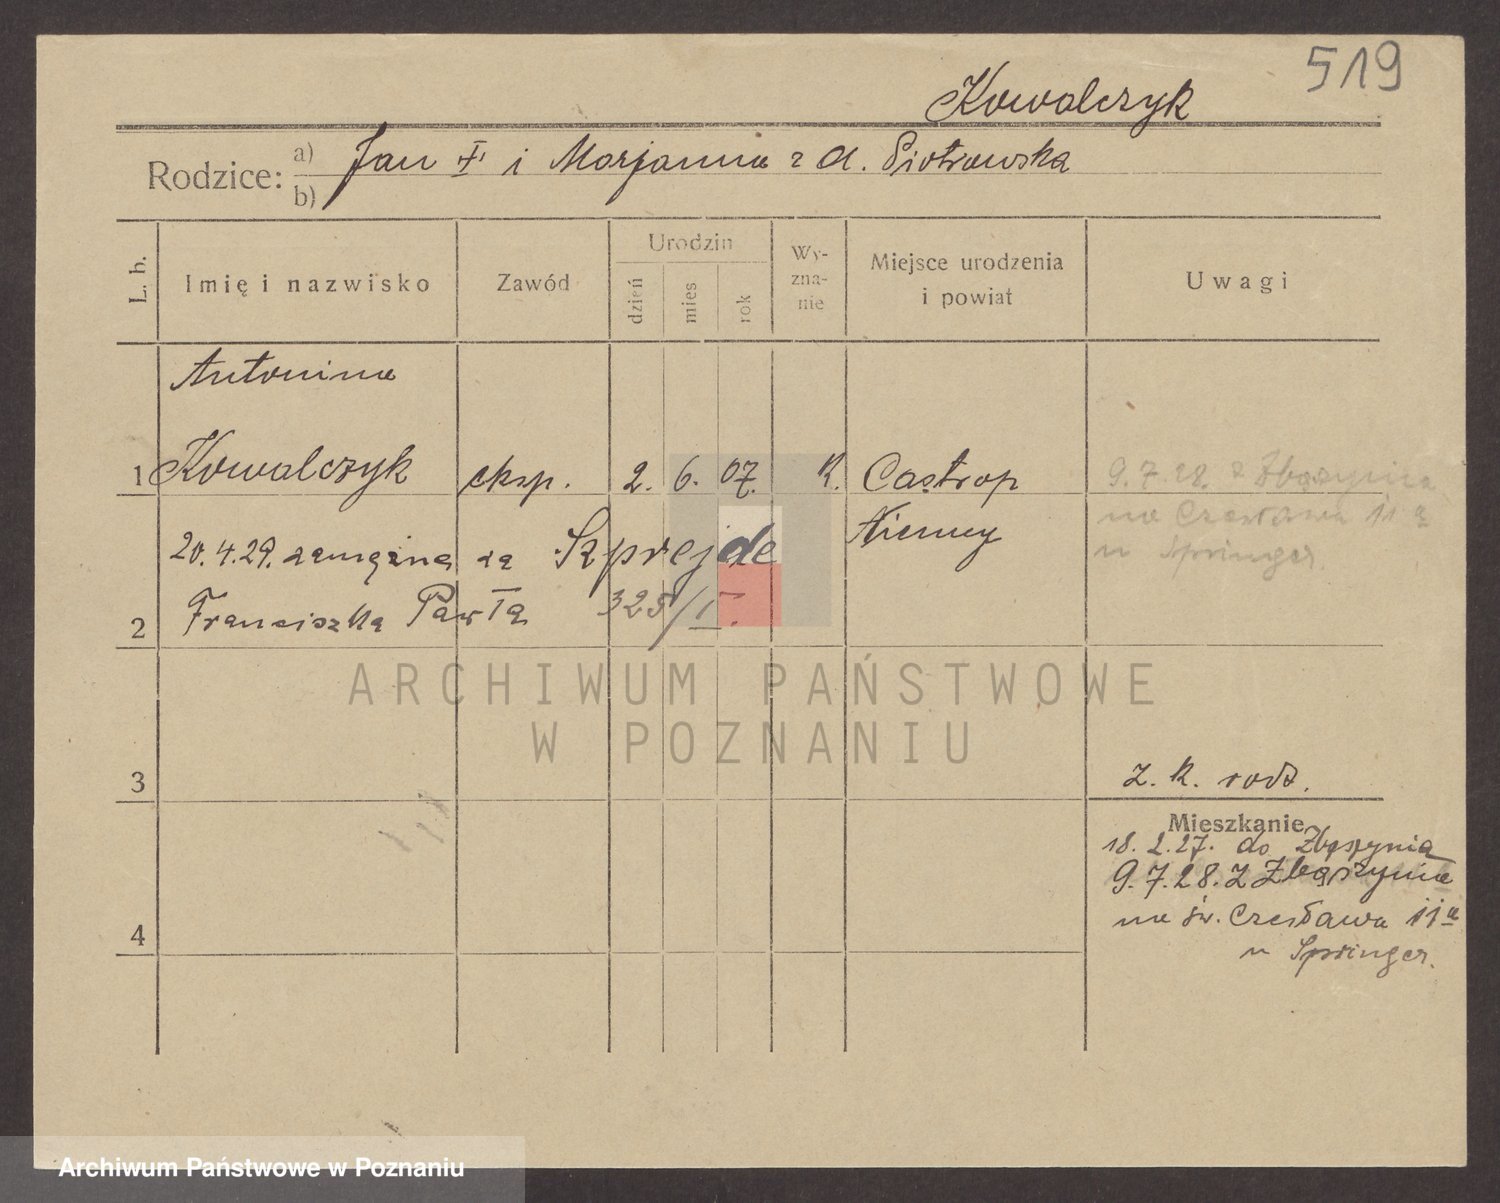 519
Kowalczyk
Rodzice: a) Jan I i Marjanna z d. Piotrowska
b)
L. b. Imię i nazwisko Zawód Urodzin dzień mies rok Wy-zna-nie Miejsce urodzenia i powiat Uwagi
Antonina
1 Kowalczyk eksp. 2. 6. 07. K. Castrop 9.7.28. z Zbąszynia
Niemcy na Czesława 11a
u Springer.
20.4.29. zamężna za Szprejde
2 Franciszka Pawła 325/I.
ARCHIWUM PAŃSTWOWE
W POZNANIU
3 z. K. rodz.
Mieszkanie
18. 2. 27. do Zbąszynia
9. 7. 28. z Zbąszynia
4 na św. Czesława 11a
u Springer.
Archiwum Państwowe w Poznaniu